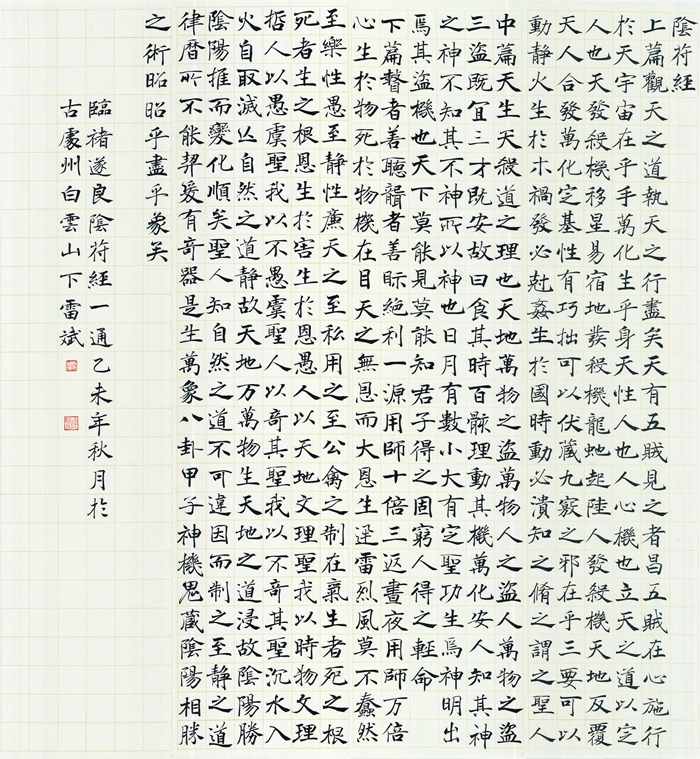 陰符經
上篇觀天之道執天之行盡矣天有五賊見之者昌五賊在心施行
於天宇宙在乎手萬化生乎身天性人也人心機也立天之道以定
人也天發殺機移星易宿地發殺機龍虵起陸人發殺機天地反覆
天人合發萬化定基性有巧拙可以伏藏九竅之邪在乎三要可以
動靜火生於木禍發必尅姦生於國時動必潰知之脩之謂之聖人
中篇天生天殺道之理也天地萬物之盜萬物人之盜人萬物之盜
三盜既宜三才既安故曰食其時百骸理動其機萬化安人知其神
之神不知其不神所以神也日月有數小大有定聖功生焉神明出
焉其盜機也天下莫能見莫能知君子得之固窮人得之輕命
下篇瞽者善聽聾者善眎絕利一源用師十倍三返晝夜用師万倍
心生於物死於物機在目天之無恩而大恩生迅雷烈風莫不蠢然
至樂性愚至靜性廉天之至私用之至公禽之制在氣生者死之根
死者生之根恩生於害生於恩愚人以天地文理聖我以時物文理
哲人以愚虞聖我以不愚虞聖人以奇其聖我以不奇其聖沉水入
火自取滅亡自然之道靜故天地万萬物生天地之道浸故陰陽勝
陰陽推而變化順矣聖人知自然之道不可違因而制之至靜之道
律曆所不能契爰有奇器是生萬象八卦甲子神機鬼藏陰陽相勝
之術昭昭乎盡乎象矣
臨褚遂良陰符經一通乙未年秋月於
古處州白雲山下雷斌